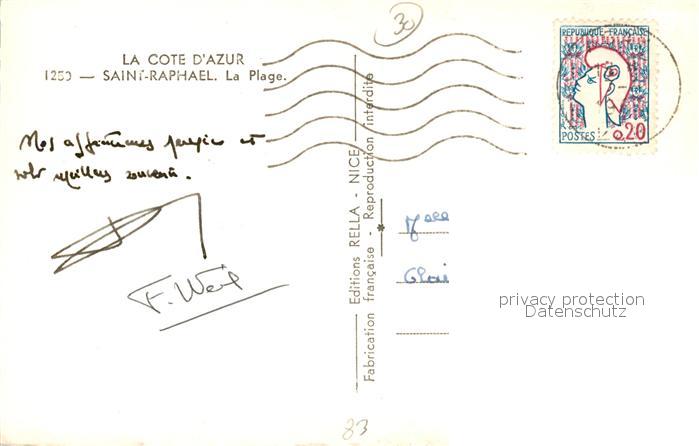 30
LA COTE D'AZUR
1250 — SAINT-RAPHAEL. La Plage.
REPUBLIQUE FRANÇAISE
POSTES 0,20
Nos affectueuses pensées et
meilleurs souvenirs.
F. Weil
Editions RELLA - NICE
Fabrication française - Reproduction interdite
Melle
privacy protection
Datenschutz
83